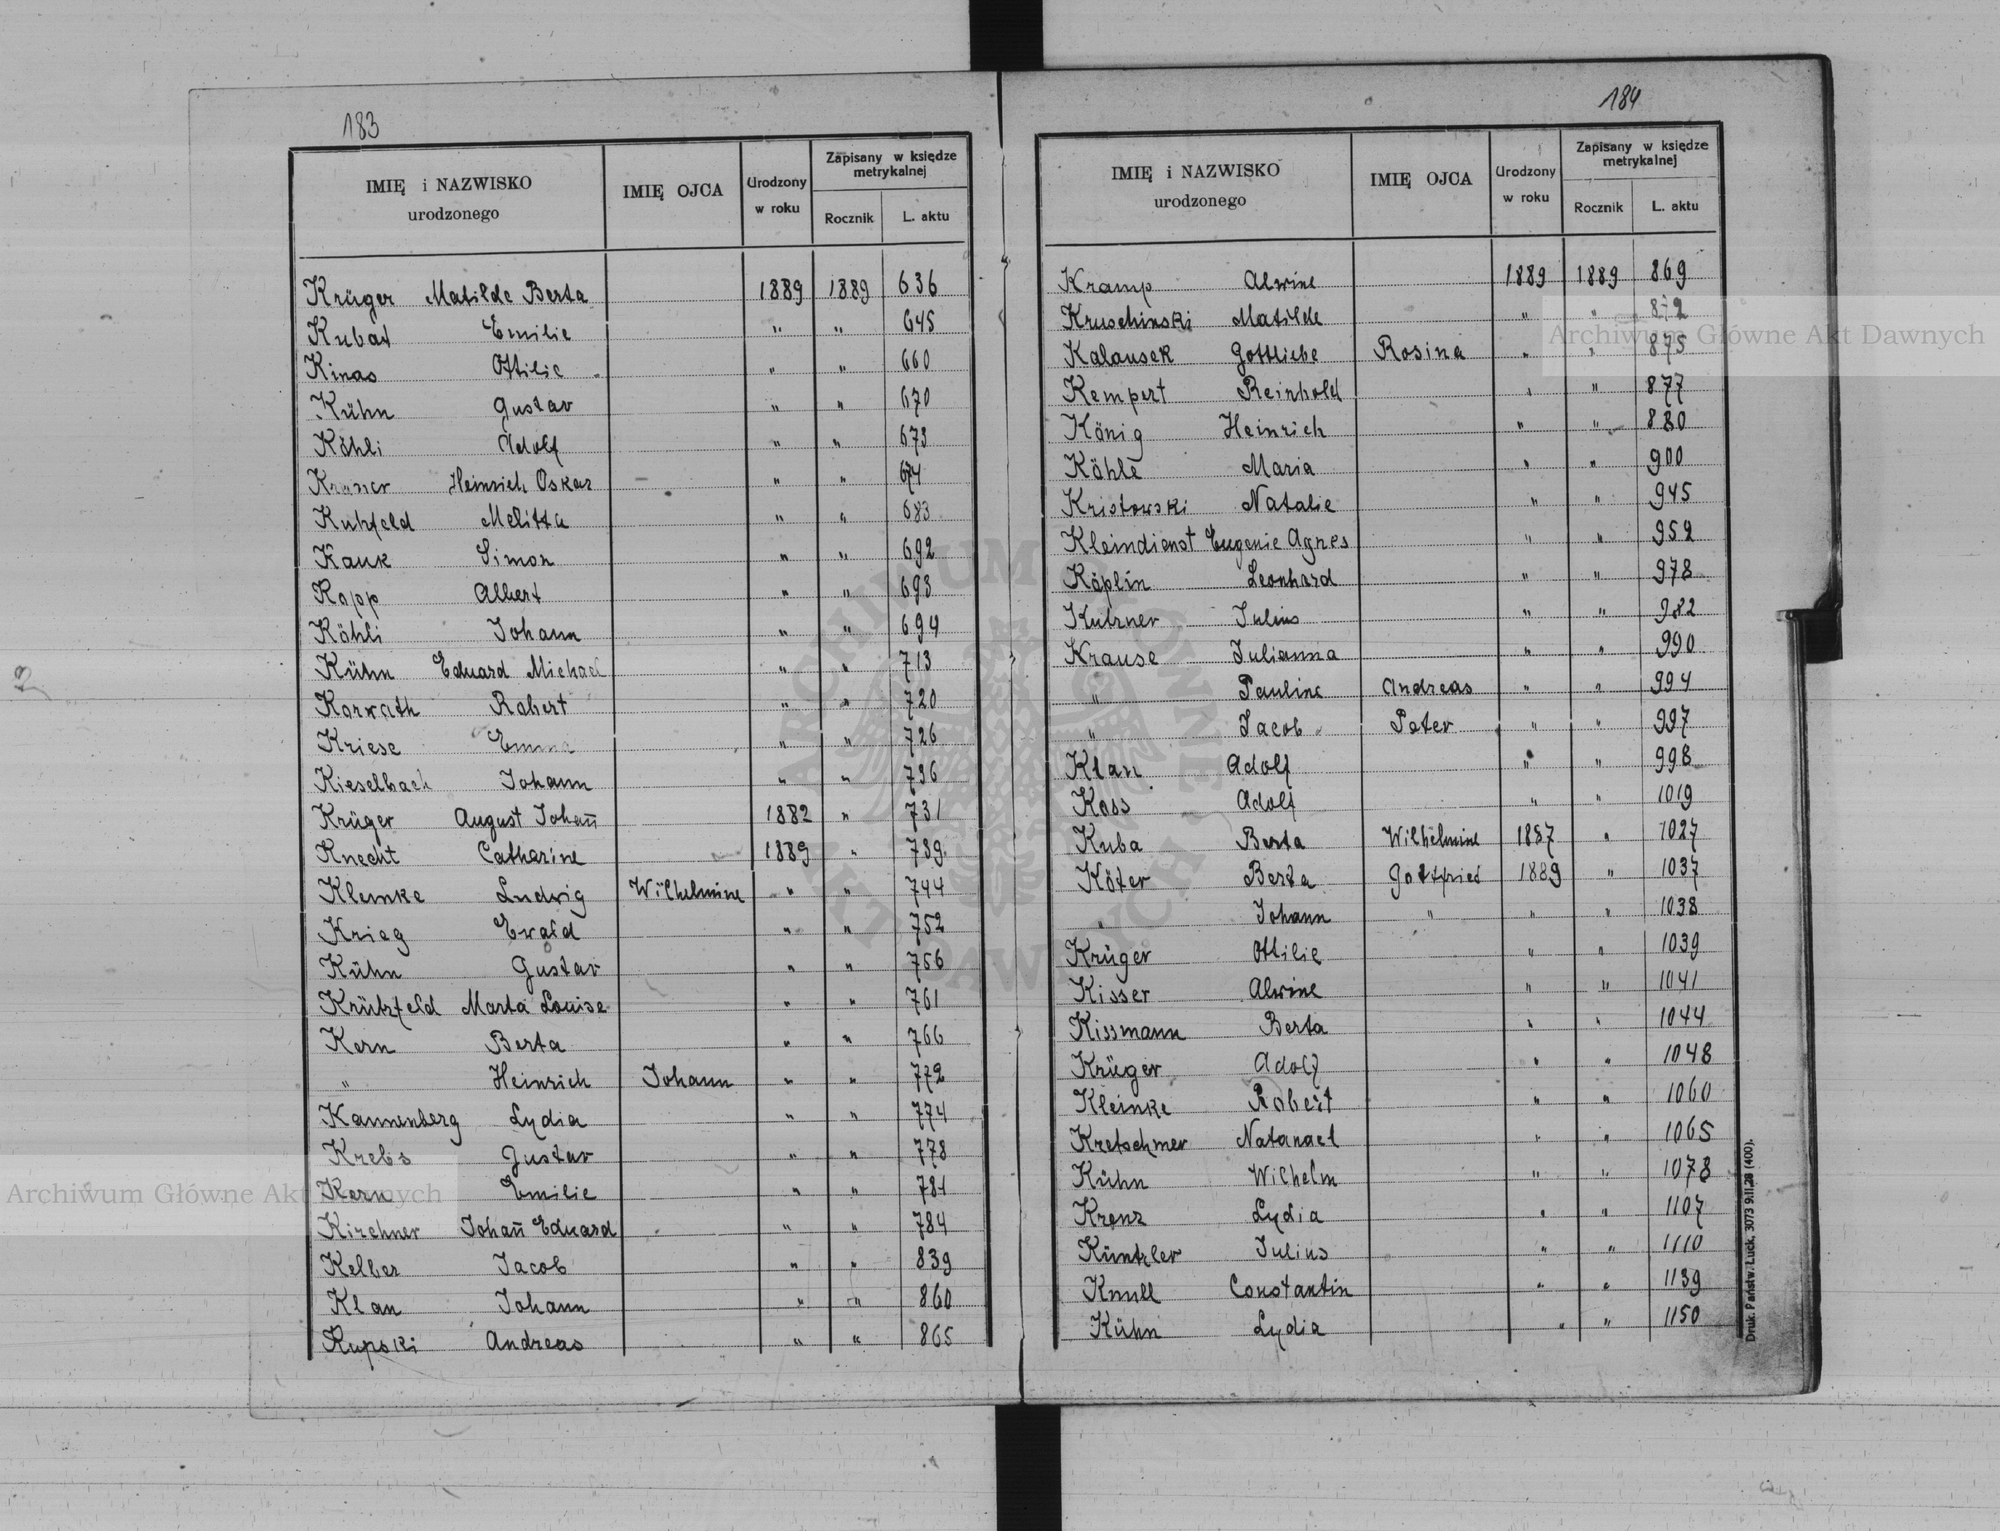 183
IMIĘ i NAZWISKO urodzonego IMIĘ OJCA Urodzony w roku Zapisany w księdze metrykalnej Rocznik L. aktu
Krüger Matilde Berta 1889 1889 636
Kubat Emilie " " 645
Kinas Ottilie " " 660
Kühn Gustav " " 670
Köhli Adolf " " 673
Heinrich Oskar " " 674
Kuhfeld Melitta " " 683
Kauk Simon " " 692
Kopp Albert " " 693
Köhli Johann " " 694
Kühn Eduard Michael " " 713
Korwath Robert " " 720
Kriese Emma " " 726
Kieselbach Johann " " 736
Krüger August Johañ 1882 " 731
Knecht Catharine 1889 " 739
Klemke Ludwig Wilhelmine " " 744
Krieg Ewald " " 752
Kühn Gustav " " 756
Krützfeld Marta Louise " " 761
Kern Berta " " 766
" Heinrich Johann " " 772
Kannenberg Lydia " " 774
Krebs Gustav " " 778
Kern Emilie " " 781
Kirchner Johañ Eduard " " 784
Kelber Jacob " " 839
Klan Johann " " 860
Kupski Andreas " " 865
184
IMIĘ i NAZWISKO urodzonego IMIĘ OJCA Urodzony w roku Zapisany w księdze metrykalnej Rocznik L. aktu
Kramp Alwine 1889 1889 869
Kruschinski Matilde " " 872
Kalausek Gottliebe Rosina " " 875
Kempert Reinhold " " 877
König Heinrich " " 880
Köhle Maria " " 900
Kristowski Natalie " " 945
Kleindienst Eugenie Agnes " " 952
Köplin Leonhard " " 978
Kutzner Julius " " 982
Krause Julianna " " 990
" Pauline Andreas " " 994
" Jacob Peter " " 997
Klan Adolf " " 998
Koss Adolf " " 1019
Kuba Berta Wilhelmine 1887 " 1027
Köter Berta Gottfried 1889 " 1037
" Johann " " " 1038
Krüger Ottilie " " 1039
Kisser Alwine " " 1041
Kissmann Berta " " 1044
Krüger Adolf " " 1048
Kleinke Robert " " 1060
Kretschmer Natanael " " 1065
Kühn Wilhelm " " 1078
Krenz Lydia " " 1107
Küntzler Julius " " 1110
Knull Constantin " " 1139
Kühn Lydia " " 1150
Druk. Państw. Łuck. 3073 9.II.28 (400).
Archiwum Główne Akt Dawnych
Archiwum Główne Akt Dawnych
ARCHIWUM GŁÓWNE AKT DAWNYCH